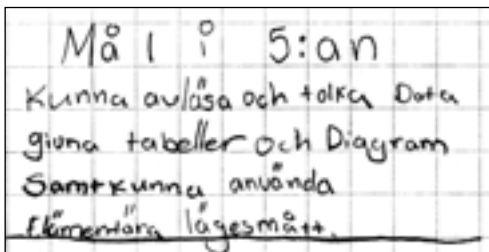 Mål i 5:an
Kunna avläsa och tolka Data
givna tabeller och Diagram
Samt kunna använda
Elementära lägesmått.